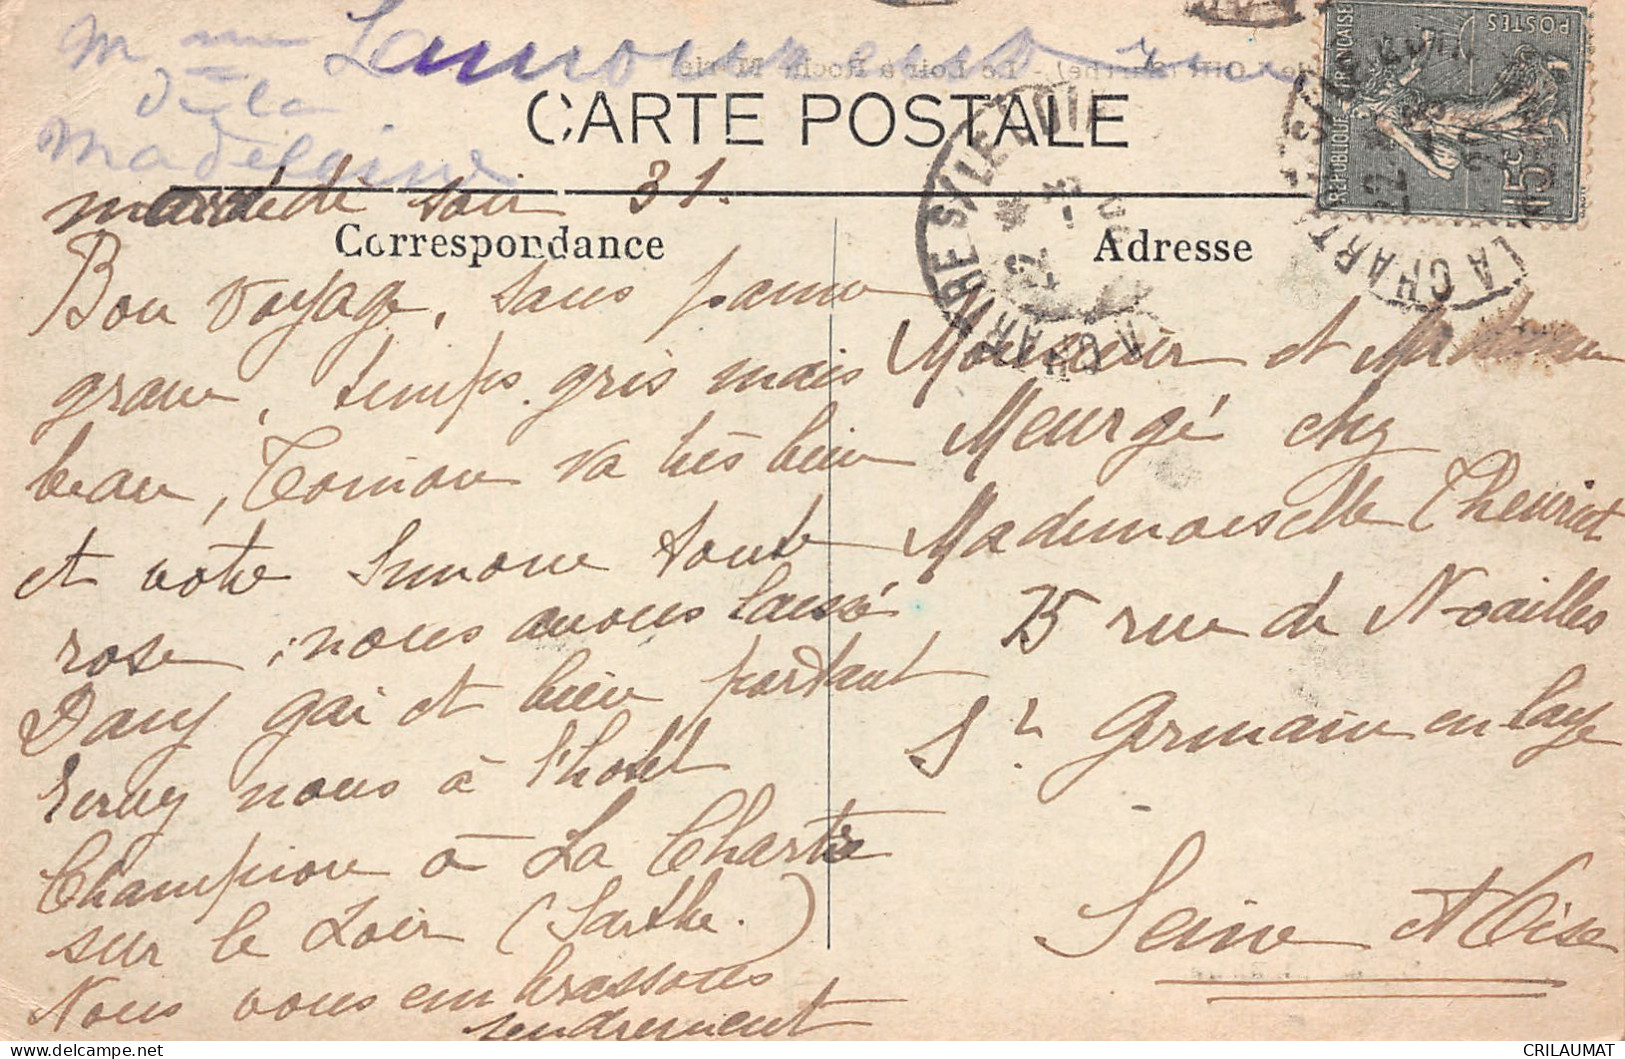 Mme Lamoureux
de la
Madeleine
CARTE POSTALE
mardi soir 31.
Correspondance
Bon voyage, sans panne
grave, temps gris mais
beau, Toinon va très bien
et votre Simone toute
rose, nous avons laissé
Dany gai et bien portant
Ecrivez nous à l'hotel
Champion à La Chartre
sur le Loir (Sarthe.)
Nous vous embrassons
tendrement
Adresse
Monsieur et Madame
Meurgé chez
Mademoiselle Theuriet
75 rue de Noailles
St Germain en laye
Seine et Oise
REPUBLIQUE FRANÇAISE
POSTES
15c
LA CHARTRE S/ LE LOIR
CRILAUMAT